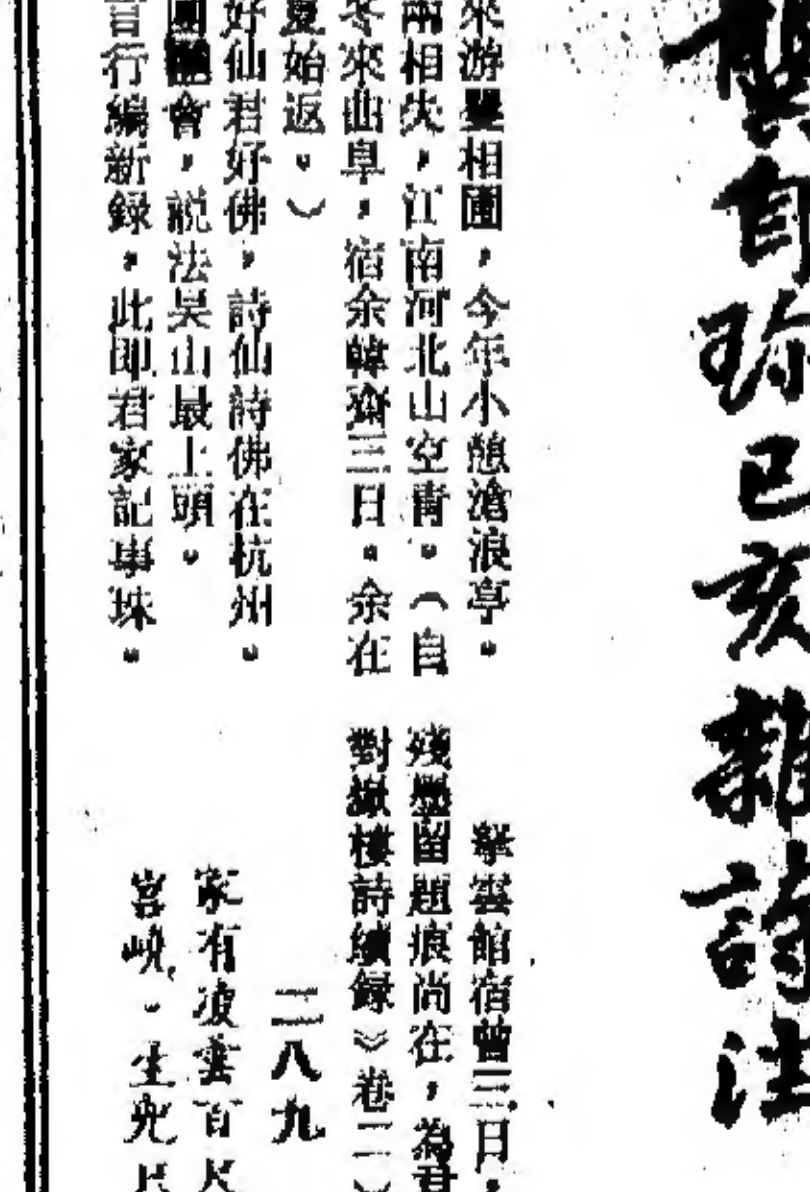 龔自珍己亥雜詩注
來游矍相圃，今年小憩滄浪亭。
兩相失，江南河北山空青。（自
冬來曲阜，宿余韡齋三日。余在
夏始返。）
好仙君好佛，詩仙詩佛在杭州。
會，説法吴山最上頭。
言行編新録，此即君家記事珠。
拏雲館宿曾三日，
殘墨留題痕尚在，為君
對嶽樓詩續録》卷二）
二八九
家有凌雲百尺
宮嶢。生兜